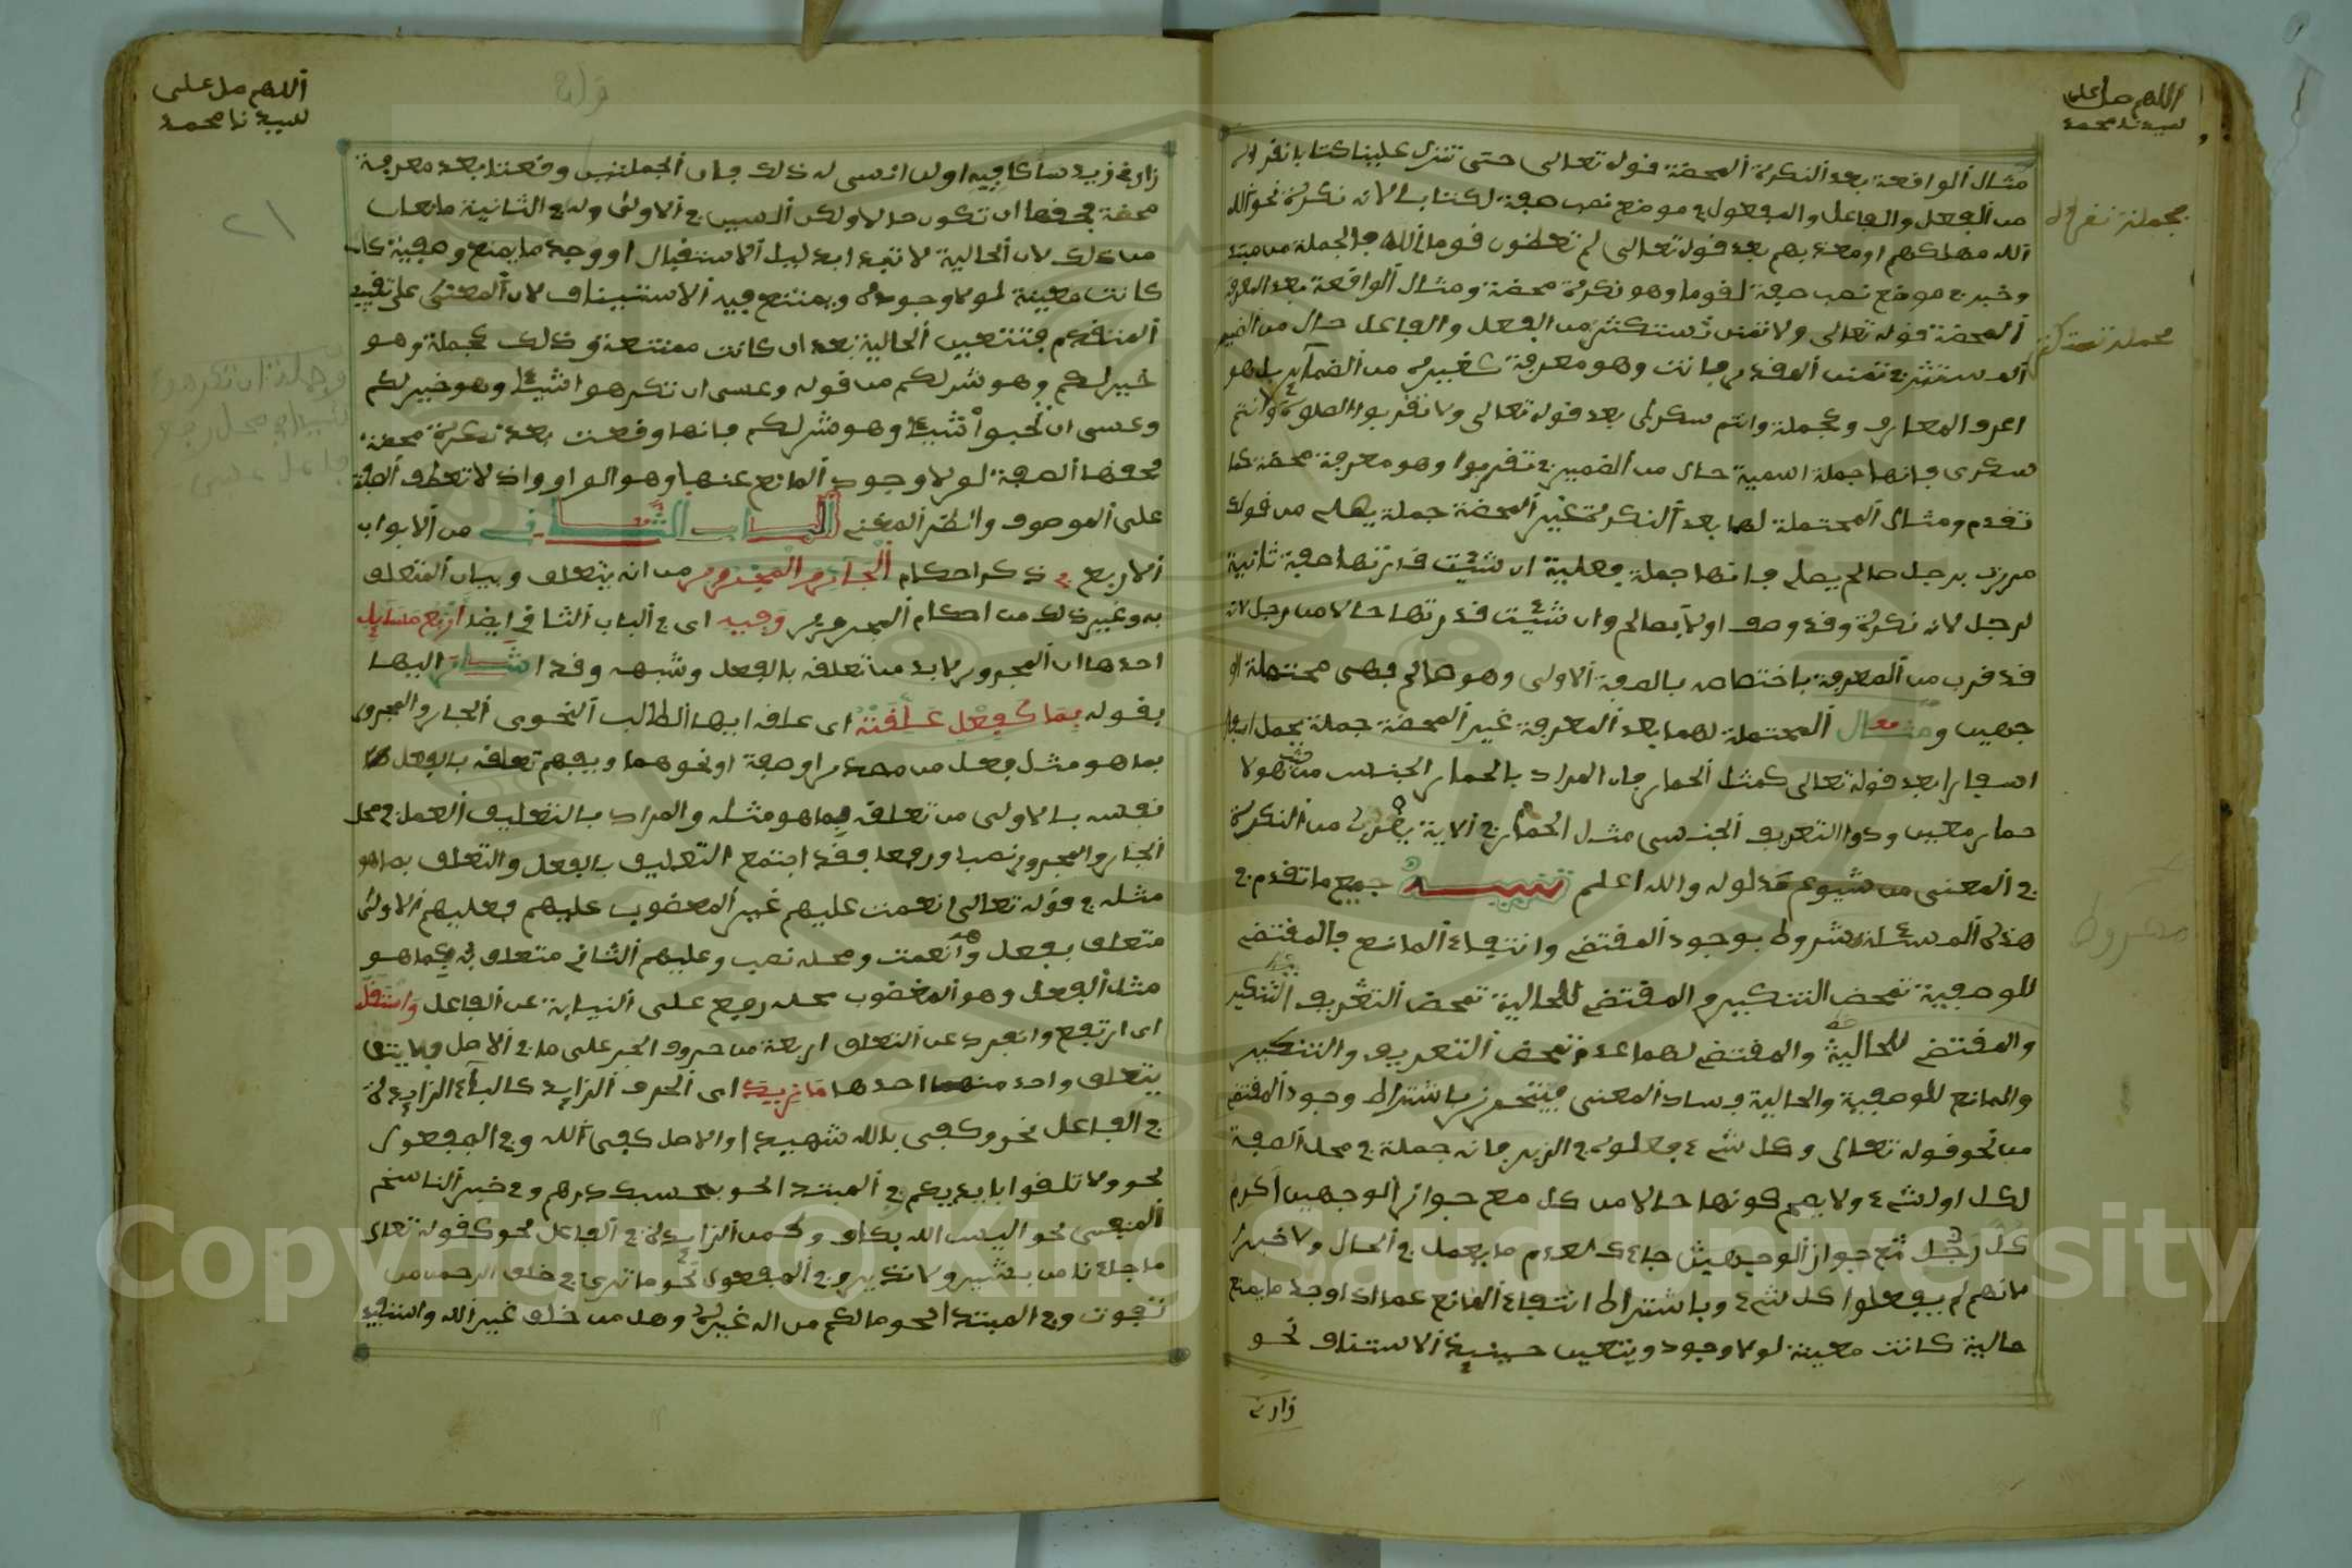 اللهم صل على
سيدنا محمد
مثال الواقعة بعد النكرة المحضة قوله تعالى حتى تنزل علينا كتابا نقرؤه
من الفعل والفاعل والمفعول في موضع نصب صفة لكتابا لانه نكرة نحو الله
الله مهلكهم او معذبهم بعد قوله تعالى لم تعظون قوما الله فالجملة من مبتدا
وخبر في موضع نصب صفة لقوما وهو نكرة محضة ومثال الواقعة بعد المعرفة
المحضة قوله تعالى ولا تمنن تستكثر من الفعل والفاعل حال من الضمير
المستتر في تمنن المقدر بانت وهو معرفة كغيره من الضمائر بل هو
اعرف المعارف وجملة وانتم سكرى بعد قوله تعالى ولا تقربوا الصلوة وانتم
سكرى فانها جملة اسمية حال من الضمير في تقربوا وهو معرفة محضة كما
تقدم ومثال المحتملة لهما بعد النكرة غير المحضة جملة يصلى من قولك
مررت برجل صالح يصلى فانها جملة فعلية ان شئت قدرتها صفة ثانية
لرجل لانه نكرة وقد وصف اولا بصالح وان شئت قدرتها حالا من رجل لانه
قد قرب من المعرفة باختصاصه بالصفة الاولى وهو صالح فهى محتملة الو
جهين ومثال المحتملة لهما بعد المعرفة غير المحضة جملة يحمل اسفارا
اسفارا بعد قوله تعالى كمثل الحمار فان المراد بالحمار الجنس من حيث هو لا
حمار معين وذوا التعريف الجنسى مثل الحمار في الاية يقرب من النكرة
في المعنى من شيوع مدلوله والله اعلم تنبيه جميع ما تقدم في
هذه المسئلة مشروط بوجود المقتضى وانتفاء المانع فالمقتضى
للوصفية تمحض التنكير والمقتضى للحالية تمحض التعريف
والمقتضى للحالية والمقتضى لهما عدم تمحض التعريف والتنكير
والمانع للوصفية والحالية فساد المعنى فيتحرز باشتراط وجود المقتضى
من نحو قوله تعالى وكل شىء فعلوه في الزبر فانه جملة في محل الصفة
لكل او لشىء ولا يصح كونها حالا من كل مع جواز الوجهين اكرم
كل رجل مع جواز الوجهين جاءك لعدم ما يعمل في الحال ولا خبرا
فانهم لم يفعلوا كل شىء وباشتراط انتفاء المانع عما اذا وجد ما يمنع
حالية كانت معينة لولا وجوده ويتعين حينئذ الاستئناف نحو
زارنى
بجملة نقرؤه
بجملة تستكثر
اللهم صل على
سيدنا محمد
٢١
زارنى زيد ساكافيه او لن انسى له ذلك فان الجملتين وقعتا بعد معرفة
محضة فحقها ان تكون حالا ولكن السين في الاولى ولن في الثانية مانعان
من ذلك لان الحالية لا تبدا بدليل الاستقبال او وجد ما يمنع وصفية كان
كانت معينة لولا وجوده ويمتنع فيه الاستيناف لان المعنى على تقييد
المتقدم فتتعين الحالية بعد ان كانت ممتنعة وذلك كجملة وهو
خير لكم وهو شر لكم من قوله وعسى ان تكرهوا شيئا وهو خير لكم
وعسى ان تحبوا شيئا وهو شر لكم فانها وقعت بعد نكرة محضة
فحقها الصفة لولا وجود المانع عنها وهو الواو واذ لا تعطف الصفة
على الموصوف وانظر المغنى الباب الثانى من الابواب
الاربع في ذكر احكام الجار والمجرور من انه يتعلق وبيان المتعلق
به وغير ذلك من احكام المجرور وفيه اى في الباب الثانى ايضا اربع مسايل
احدها ان المجرور لابد من تعلقه بالفعل وشبهه وقد اشار اليها
بقوله بما كفعل علقته اى علقه ايها الطالب النحوى الجار والمجرور
بما هو مثل فعل من مصدر او صفة او نحوهما ويفهم تعلقه بالفعل
نفسه بالاولى من تعلقه بما هو مثله والمراد بالتعليق العمل في محل
الجار والمجرور نصبا ورفعا وقد اجتمع التعليق بالفعل والتعلق بما هو
مثله في قوله تعالى انعمت عليهم غير المغضوب عليهم فعليهم الاولى
متعلق بفعل وهو انعمت ومحله نصب وعليهم الثانى متعلق فيه بما هو
مثل الفعل وهو المغضوب محله رفع على النيابة عن الفاعل واستقل
اى ارتفع وانفرد عن التعلق اربعة من حروف الجر على ما في الاصل فلا يتعلق
يتعلق واحد منهما احدها ما زيد اى الحرف الزايد كالباء الزايدة
في الفاعل نحو وكفى بالله شهيدا والاصل كفى الله وفي المفعول
نحو ولا تلقوا بايديكم في المبتدا نحو بحسبك درهم وفي خبر الناسخ
المنفى نحو اليس الله بكاف وكمن الزايدة في الفاعل نحو كقوله تعالى
ما جاءنا من بشير ولا نذير وفي المفعول نحو ما ترى في خلق الرحمن من
تفوت وفي المبتدا نحو ما لكم من اله غيره وهل من خلق غير الله واستفيد